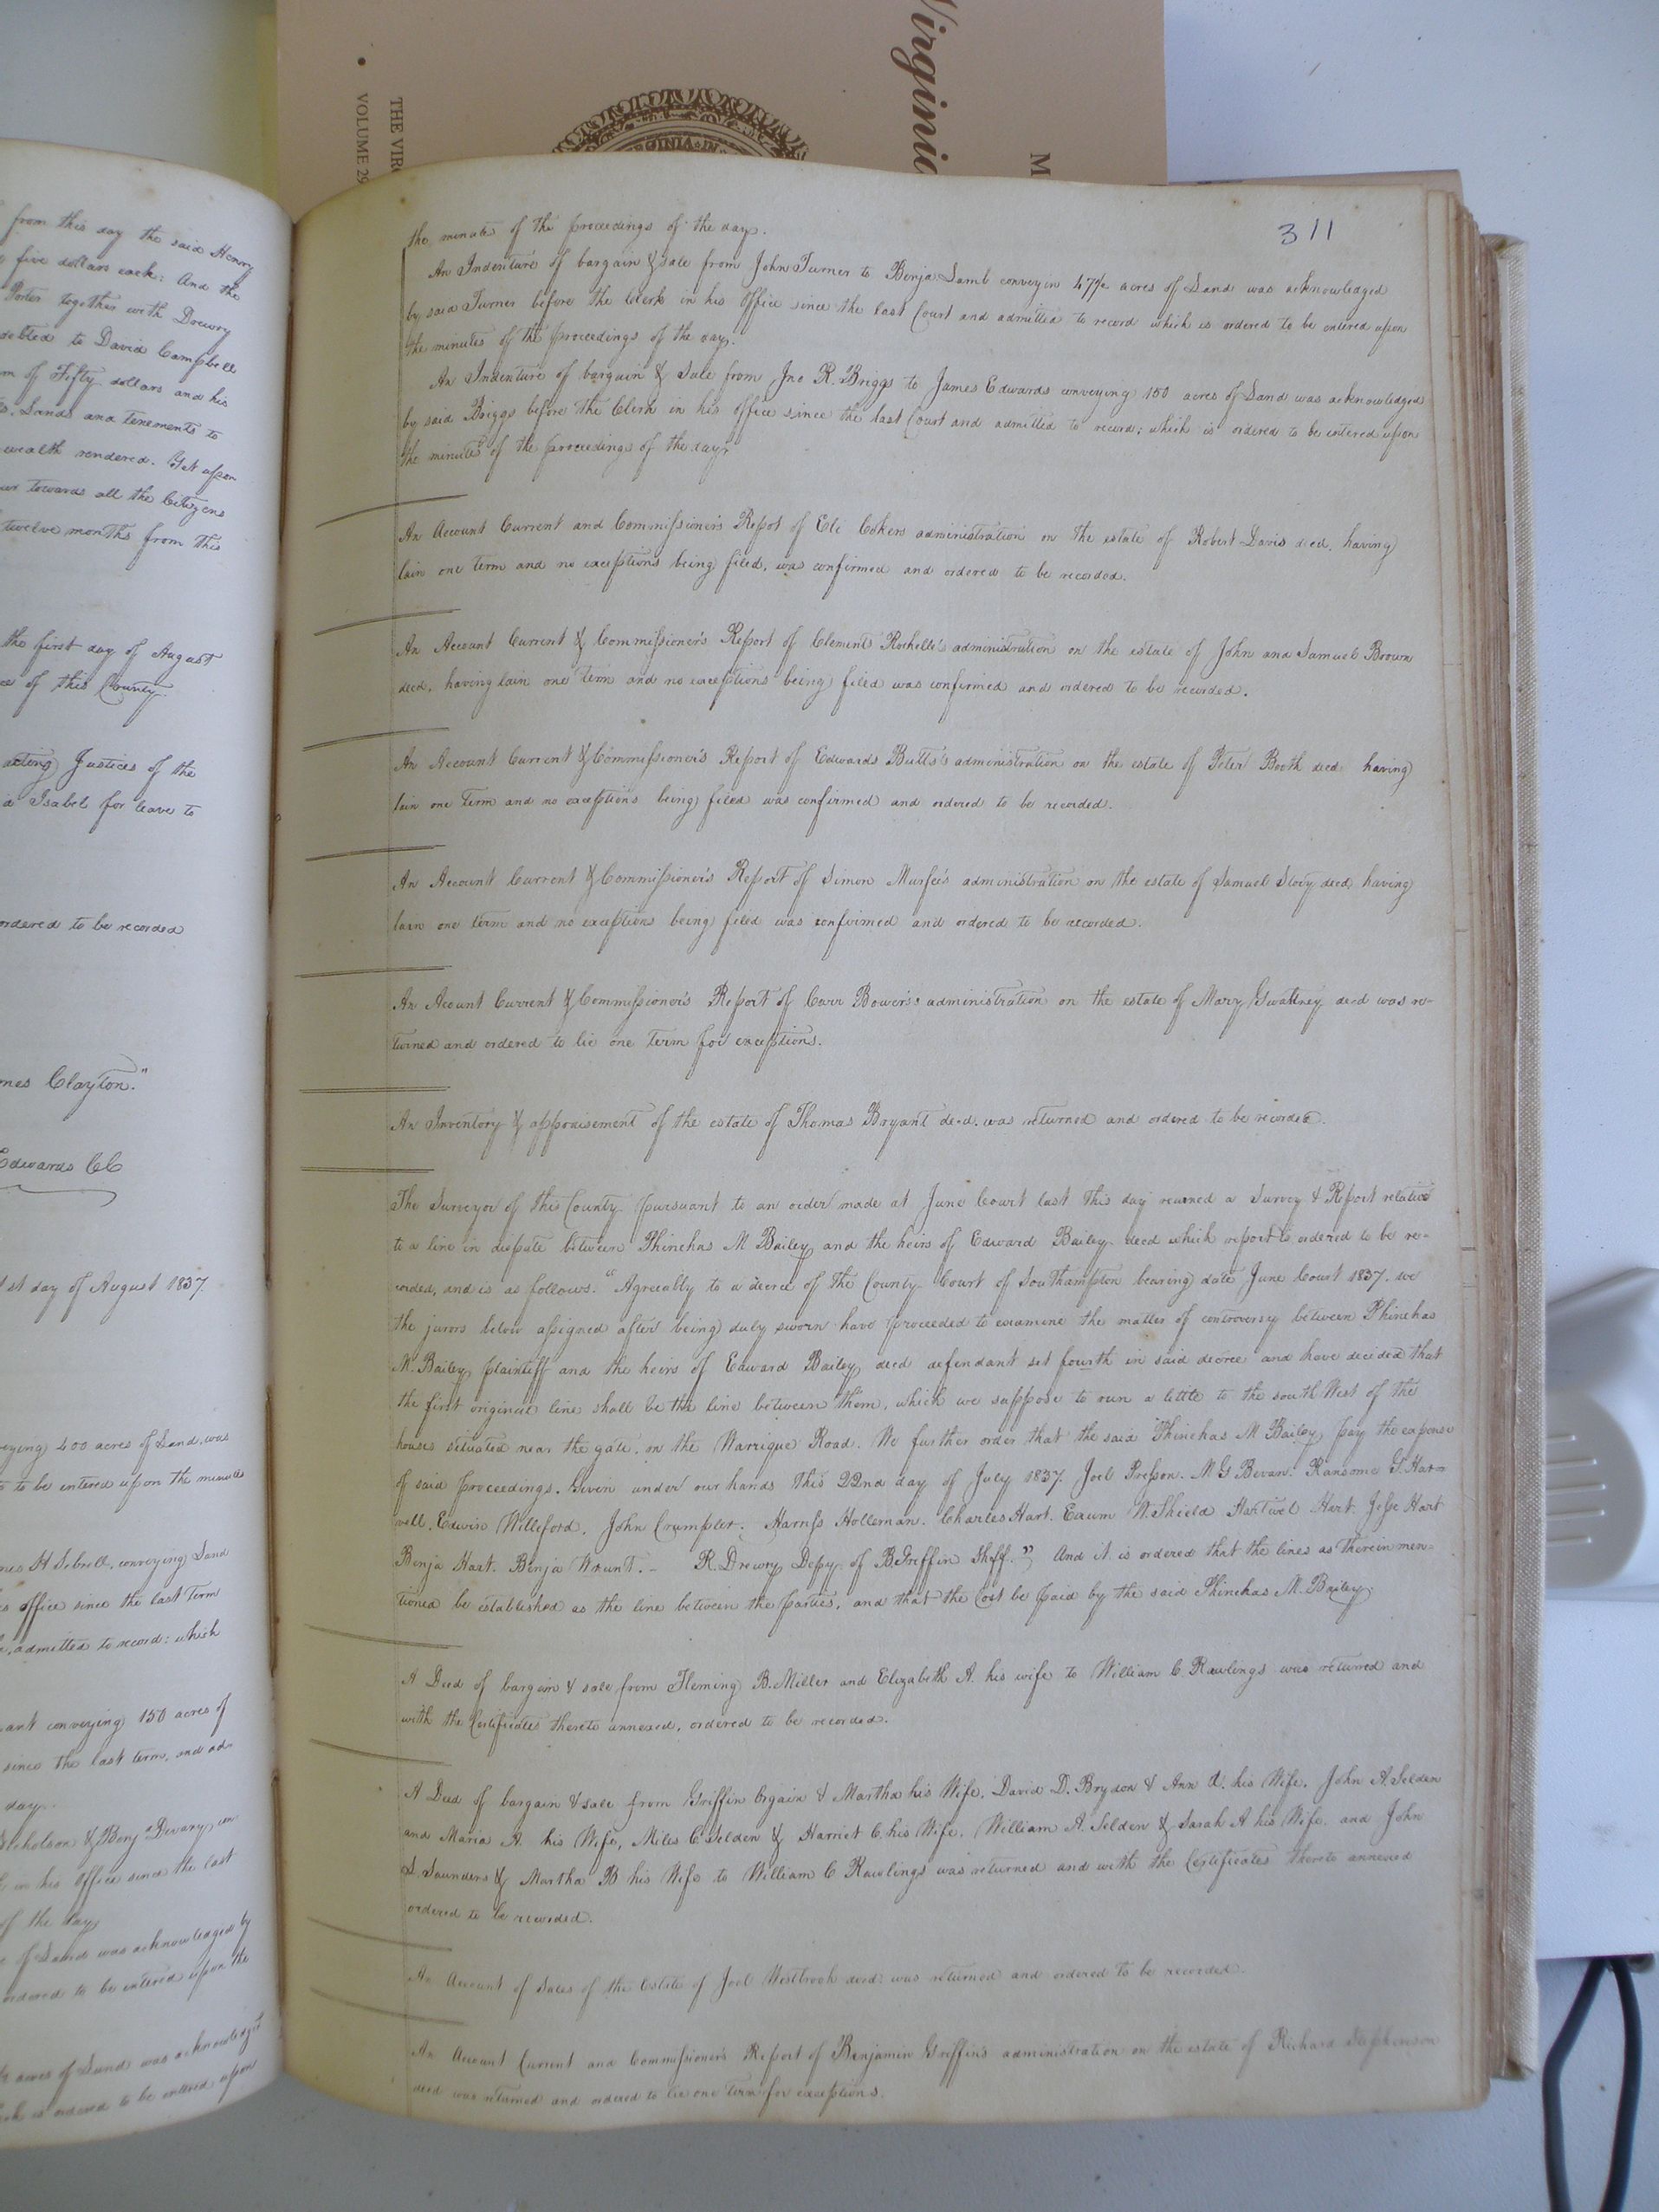 Virginia
M
THE VIR
VOLUME 29
GINIA IN
from this day the said Henry
five dollars each: And the
Porter together with Drewry
debted to David Campbell
m of Fifty dollars and his
Lands and tenements to
wealth rendered. Yet upon
towards all the Citizens
twelve months from this
the first day of August
ce of this County
acting Justices of the
Isabel for leave to
ordered to be recorded
mes Clayton."
Edwards CC
1st day of August 1837.
eying 400 acres of Land, was
to be entered upon the minutes
mes H Sebrell, conveying Land
s office since the last Term
admitted to record: which
ant conveying 150 acres of
since the last term, and ad=
day.
Nicholson & Benj Devany
in his Office since the last
of the day
of Land was acknowledged by
ordered to be entered upon the
acres of Land was acknowledged
is ordered to be entered upon
311
the minutes of the proceedings of the day.
An Indenture of bargain & sale from John Turner to Benja Lamb conveyin 47½ acres of Land was acknowledged
by said Turner before the Clerk in his Office since the last Court and admitted to record which is ordered to be entered upon
the minutes of the proceedings of the day.
An Indenture of bargain & Sale from Jno R. Briggs to James Edwards conveying 150 acres of Land was acknowledged
by said Briggs before the Clerk in his Office since the last Court and admitted to record; which is ordered to be entered upon
the minutes of the proceedings of the day.
An Account Current and Commissioner's Repot of Eli Cokers administration on the estate of Robert Davis decd. having
lain one term and no exceptions being filed, was confirmed and ordered to be recorded.
An Account Current & Commissioner's Report of Clements Rochelle's administration on the estate of John and Samuel Brown
decd, having lain one Term and no exceptions being filed was confirmed and ordered to be recorded.
An Account Current & Commissioner's Report of Edwards Butts's administration on the estate of Peter Booth decd having
lain one Term and no exceptions being filed was confirmed and ordered to be recorded.
An Account Current & Commissioner's Report of Simon Murfee's administration on the estate of Samuel Story decd having
lain one term and no exceptions being filed was confirmed and ordered to be recorded.
An Acount Current & Commissioner's Report of Carr Bowers's administration on the estate of Mary Gwaltney decd was re-
turned and ordered to lie one Term for exceptions.
An Inventory & appraisement of the estate of Thomas Bryant decd. was returned and ordered to be recorded.
The Surveyor of this County pursuant to an order made at June Court last this day reurned a Survey & Report relative
to a line in dispute between Phinehas M Bailey and the heirs of Edward Bailey decd which report is ordered to be re-
corded, and is as follows. "Agreeably to a decree of the County Court of Southampton bearing date June Court 1837. we
the jurors below assigned after being duly sworn have proceeded to examine the matter of controversy between Phinehas
M. Bailey plaintiff and the heirs of Edward Bailey decd defendant set fourth in said decree and have decided that
the first original line shall be the line between them, which we suppose to run a little to the south West of the
houses situated near the gate, on the Warrique Road. We further order that the said Phinehas M Bailey pay the expense
of said proceedings. Given under our hands this 22nd day of July 1837. Joel Presson. M G Bevan. Ransome G. Har=
well. Edwin Williford. John Crumpler. Harnss Holleman. Charles Hart. Exum W. Shield Hartwel Hart. Jesse Hart
Benja Hart. Benja Wrunt. - R. Drewry Depy. of B. Griffin Shff." And it is ordered that the lines as therein men=
tioned be established as the line between the parties, and that the Cost be paid by the said Phinehas M. Bailey.
A Deed of bargain & sale from Fleming B. Miller and Elizabeth A. his wife to William C. Rawlings was returned and
with the Certificates thereto annexed, ordered to be recorded.
A Deed of bargain & sale from Griffin Orgain & Martha his Wife, David D. Brydon & Ann his Wife, John A. Selden
and Maria A. his Wife, Miles C. Selden & Harriet C. his Wife, William A. Selden & Sarah A his Wife, and John
S. Saunders & Martha B his Wife to William C Rawlings was returned and with the Certificates thereto annexed
ordered to be recorded.
An Account of Sales of the Estate of Joel Westbrook decd was returned and ordered to be recorded.
An Account Current and Commissioner's Report of Benjamin Griffin's administration on the estate of Richard Stephenson
decd was returned and ordered to lie one Term for exceptions.